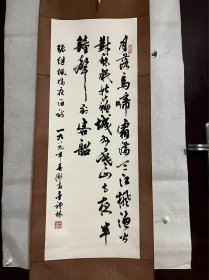 月落烏啼霜滿天江楓漁火
對愁眠姑蘇城外寒山寺夜半
鐘聲到客船
張継楓橋夜泊詩 一九八九年春